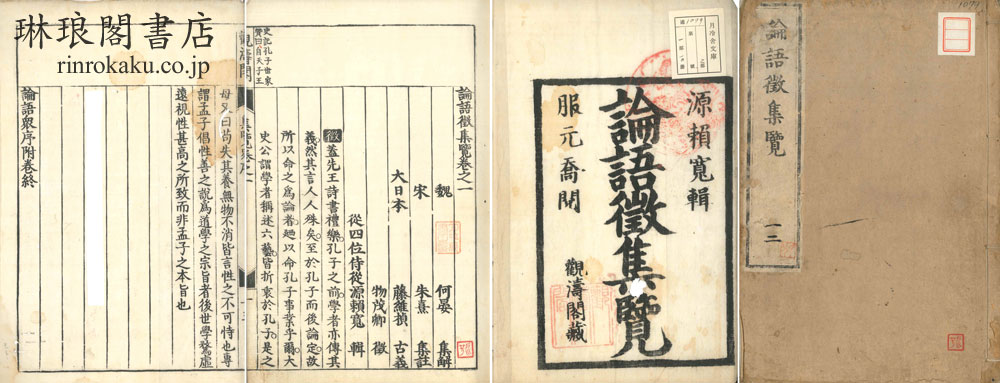 琳琅閣書店
rinrokaku.co.jp
母又曰苟失其養無物不消皆言性之不可恃也專
謂孟子倡性善之說爲道學之宗旨者後世學騖虛
遠視性甚高之所致而非孟子之本旨也
論語衆序附卷終
史記孔子世家
贊曰自天子王
觀濤閣
論語徵集覽卷之一
魏 何晏 集解
宋 朱熹 集註
大日本 藤維楨 古義
物茂卿 徵
從四位侍從源賴寬 輯
徵蓋先王詩書禮樂孔子之前學者亦傳其
義然其言人人殊矣至於孔子而後論定故
所以命之爲論者廼以命孔子事業乎爾大
史公謂學者稱述六藝皆折衷於孔子是之
月洊舍文庫
1079
源賴寬輯
論語徵集覽
服元喬閱
觀濤閣藏
論語徵集覽 一二
1079